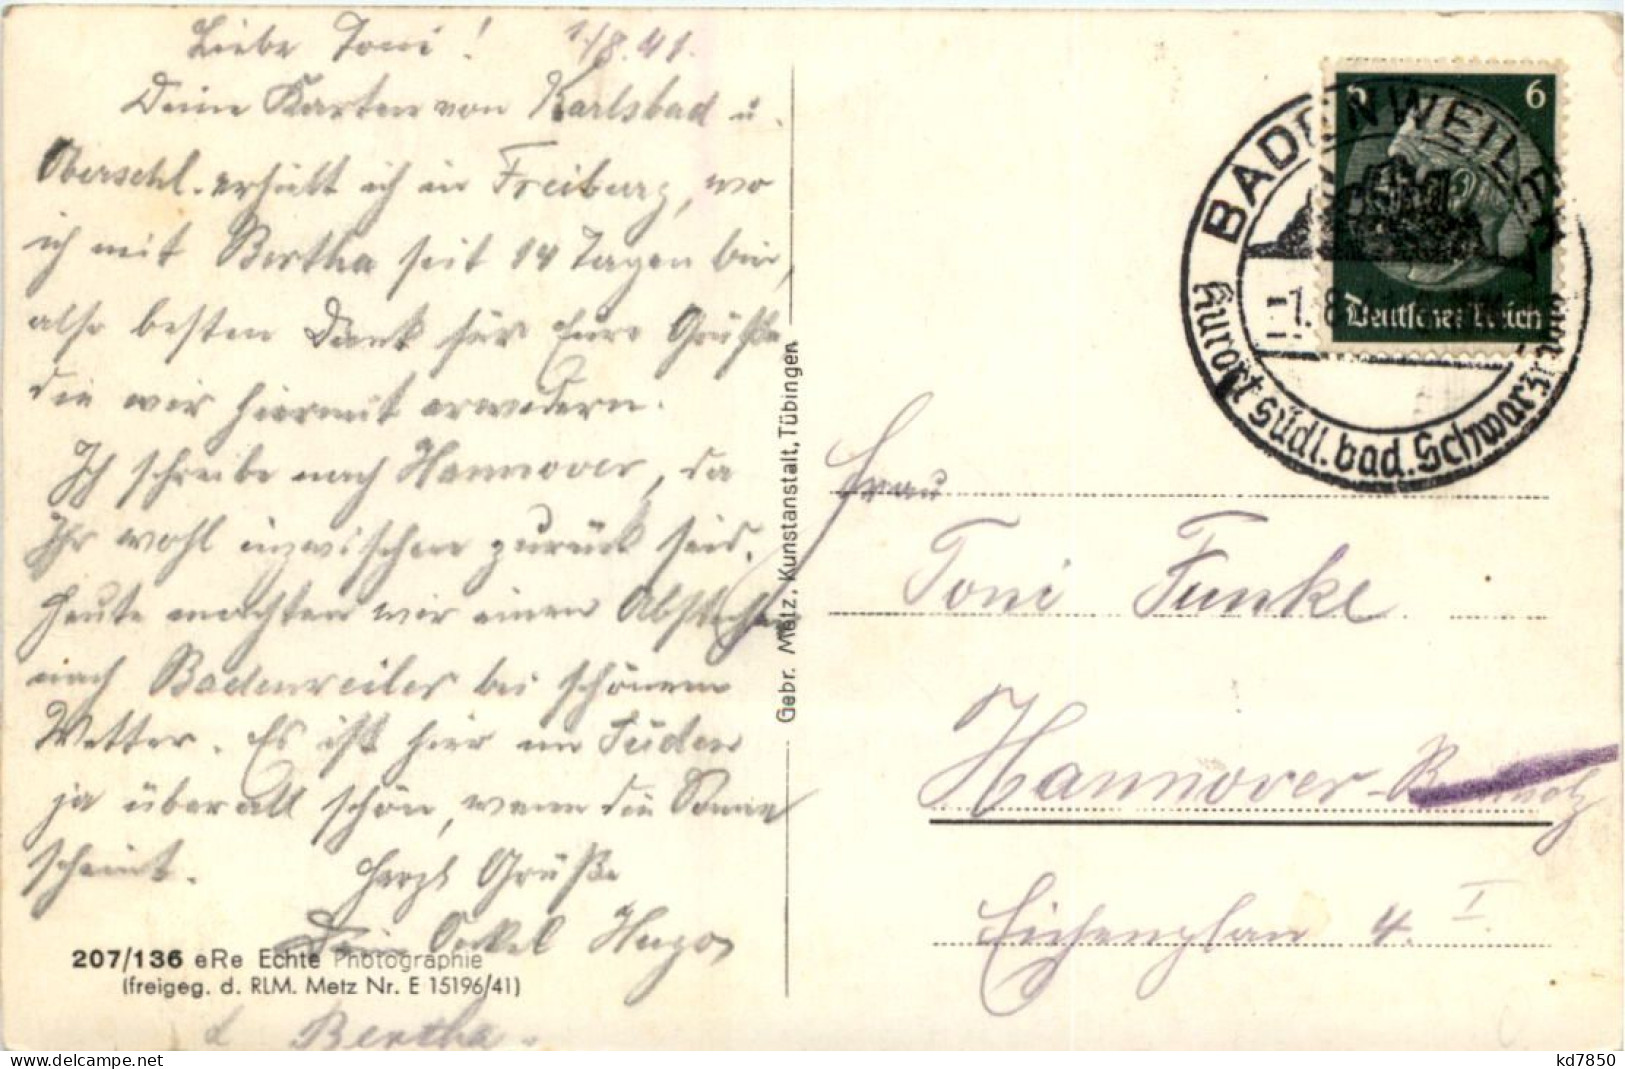 Liebe Toni! 1./8.41.
Deine Karten von Karlsbad u.
Oberschl. erhielt ich in Freiburg, wo
ich mit Bertha seit 14 Tagen bin,
also besten Dank für Eure Grüße
die wir hiermit erwidern.
Ich schreibe nach Hannover, da
Ihr wohl inzwischen zurück seid.
Heute machten wir einen Abstecher
nach Badenweiler bei schönem
Wetter. Es ist hier im Süden
ja überall schön, wenn die Sonne
scheint. Herzl Grüße
Dein Onkel Hugo
207/136 eRe Echte Photographie
(freigeg. d. RLM. Metz Nr. E 15196/41)
Bertha.
Gebr. Metz, Kunstanstalt, Tübingen
BADENWEILER
-1.8.
Kurort südl. bad. Schwarzwald
6
Deutsches Reich
Frau
Toni Funke
Hannover-
Eichenplan 4. I
kd7850
delcampe.net